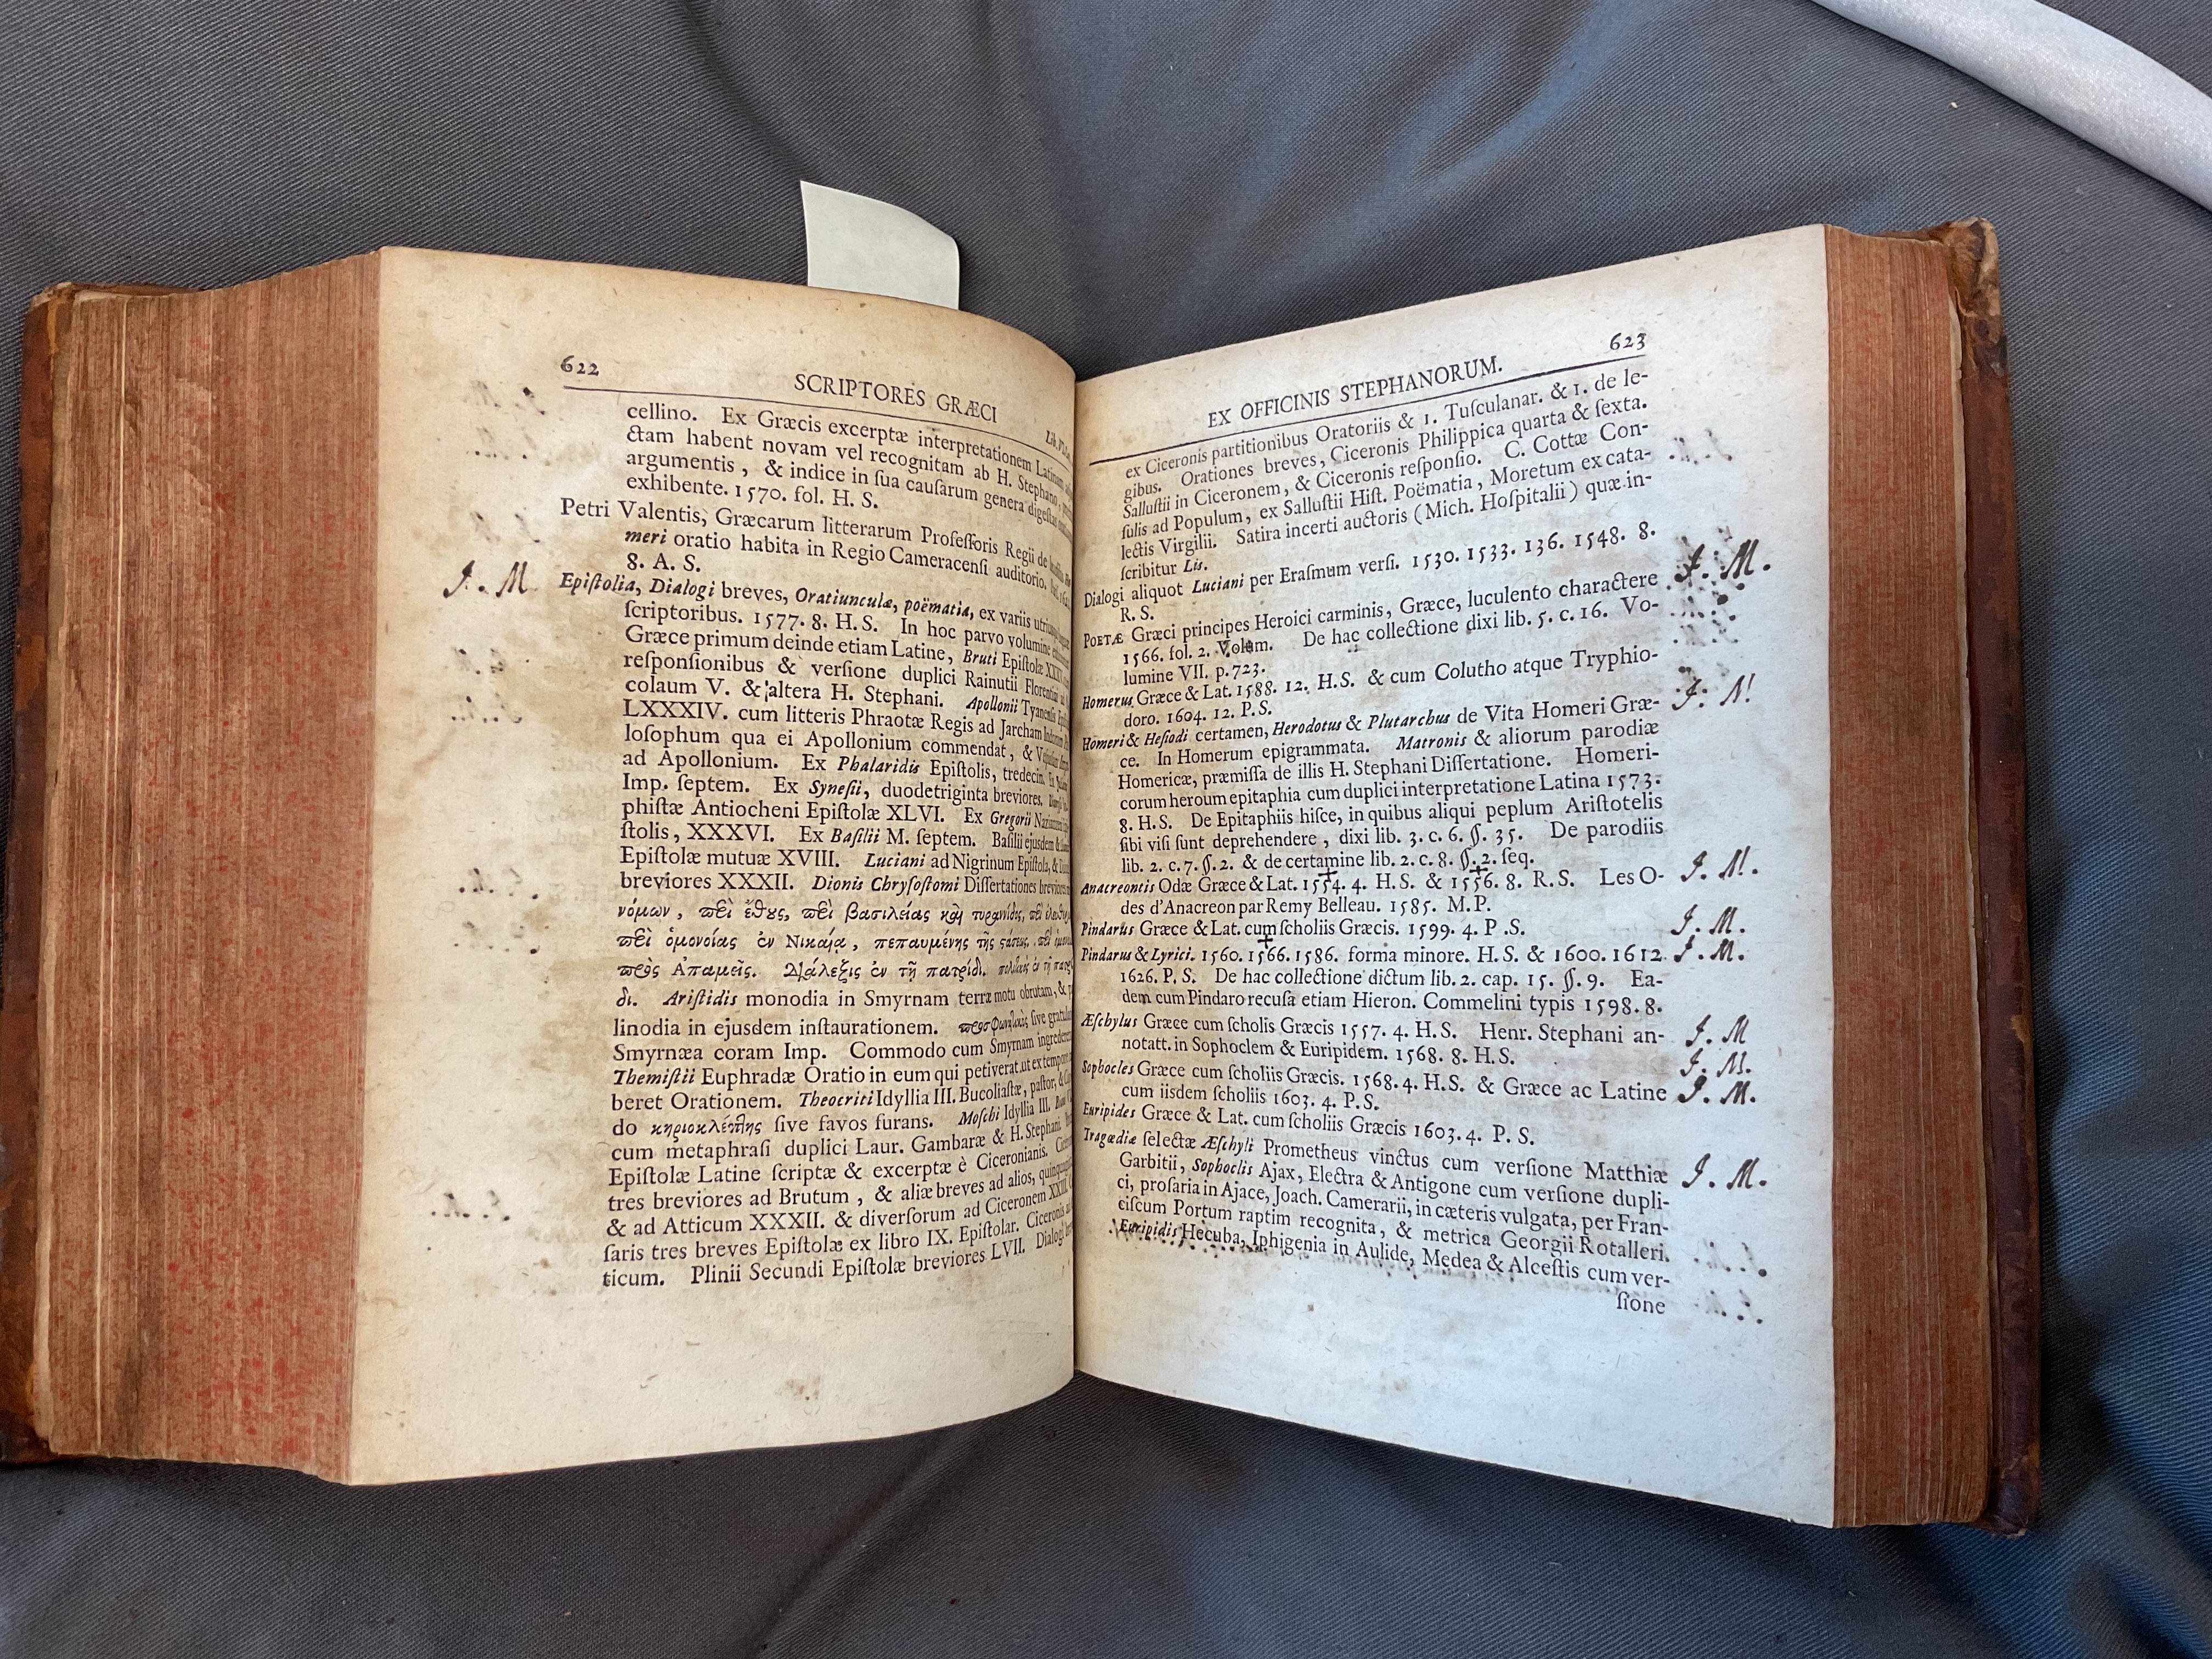 622
SCRIPTORES GRÆCI
Lib.
cellino. Ex Græcis excerptæ interpretationem Latinam
ctam habent novam vel recognitam ab H. Stephano,
argumentis, & indice in ſua cauſarum genera digeſtas
exhibente. 1570. fol. H. S.
Petri Valentis, Græcarum litterarum Profeſſoris Regii de
meri oratio habita in Regio Cameracenſi auditorio.
8. A. S.
J. M.
Epiſtolia, Dialogi breves, Oratiunculæ, poëmatia, ex variis
ſcriptoribus. 1577. 8. H. S. In hoc parvo volumine
Græce primum deinde etiam Latine, Bruti Epiſtolæ
reſponſionibus & verſione duplici Rainutii Florentini
colaum V. & altera H. Stephani. Apollonii Tyanenſis
LXXXIV. cum litteris Phraotæ Regis ad Jarcham
loſophum qua ei Apollonium commendat, &
ad Apollonium. Ex Phalaridis Epiſtolis, tredecim.
Imp. ſeptem. Ex Syneſii, duodetriginta breviores.
phiſtæ Antiocheni Epiſtolæ XLVI. Ex Gregorii
ſtolis, XXXVI. Ex Baſilii M. ſeptem. Baſilii ejusdem &
Epiſtolæ mutuæ XVIII. Luciani ad Nigrinum Epiſtola, &
breviores XXXII. Dionis Chryſoſtomi Diſſertationes breviores
νόμων, περὶ ἔθους, περὶ βασιλείας καὶ τυραννίδος, περὶ
περὶ ὁμονοίας ἐν Νικαίᾳ, πεπαυμένης τῆς στάσεως,
πρὸς Ἀπαμεῖς. Διάλεξις ἐν τῇ πατρίδι. πολιτικὸς ἐν τῇ
δι. Ariſtidis monodia in Smyrnam terræ motu obrutam, &
linodia in ejusdem inſtaurationem. προσφωνητικὸς ſive
Smyrnæa coram Imp. Commodo cum Smyrnam
Themiſtii Euphradæ Oratio in eum qui petiverat ut
beret Orationem. Theocriti Idyllia III. Bucoliaſtæ, paſtor, &
do κηριοκλέπτης ſive favos furans. Moſchi Idyllia III.
cum metaphraſi duplici Laur. Gambaræ & H. Stephani
Epiſtolæ Latine ſcriptæ & excerptæ è Ciceronianis.
tres breviores ad Brutum, & aliæ breves ad alios,
& ad Atticum XXXII. & diverſorum ad Ciceronem XXIII.
ſaris tres breves Epiſtolæ ex libro IX. Epiſtolar. Ciceronis
ticum. Plinii Secundi Epiſtolæ breviores LVII. Dialogi
EX OFFICINIS STEPHANORUM.
623
ex Ciceronis partitionibus Oratoriis & 1. Tuſculanar. & 1. de le-
gibus. Orationes breves, Ciceronis Philippica quarta & ſexta.
Salluſtii in Ciceronem, & Ciceronis reſponſio. C. Cottæ Con-
ſulis ad Populum, ex Salluſtii Hiſt. Poëmatia, Moretum ex cata-
lectis Virgilii. Satira incerti auctoris (Mich. Hoſpitalii) quæ in-
ſcribitur Lis.
Dialogi aliquot Luciani per Eraſmum verſi. 1530. 1533. 136. 1548. 8.
R. S.
J. M.
POETÆ Græci principes Heroici carminis, Græce, luculento charactere
1566. fol. 2. Volum. De hac collectione dixi lib. 5. c. 16. Vo-
lumine VII. p. 723.
Homerus Græce & Lat. 1588. 12. H.S. & cum Colutho atque Tryphio-
doro. 1604. 12. P. S.
J. M
Homeri & Heſiodi certamen, Herodotus & Plutarchus de Vita Homeri Græ-
ce. In Homerum epigrammata. Matronis & aliorum parodiæ
Homericæ, præmiſſa de illis H. Stephani Diſſertatione. Homeri-
corum heroum epitaphia cum duplici interpretatione Latina 1573.
8. H.S. De Epitaphiis hiſce, in quibus aliqui peplum Ariſtotelis
ſibi viſi ſunt deprehendere, dixi lib. 3. c. 6. §. 35. De parodiis
lib. 2. c. 7. §. 2. & de certamine lib. 2. c. 8. §. 2. ſeq.
Anacreontis Odæ Græce & Lat. 1554. 4. H.S. & 1556. 8. R.S. Les O- J. M.
des d'Anacreon par Remy Belleau. 1585. M. P.
Pindarus Græce & Lat. cum ſcholiis Græcis. 1599. 4. P. S. J. M.
Pindarus & Lyrici. 1560. 1566. 1586. forma minore. H.S. & 1600. 1612 J. M.
1626. P. S. De hac collectione dictum lib. 2. cap. 15. §. 9. Ea-
dem cum Pindaro recuſa etiam Hieron. Commelini typis 1598. 8.
Æſchylus Græce cum ſcholis Græcis 1557. 4. H.S. Henr. Stephani an- J. M
notatt. in Sophoclem & Euripidem. 1568. 8. H.S. J. M.
Sophocles Græce cum ſcholiis Græcis. 1568. 4. H.S. & Græce ac Latine J. M.
cum iisdem ſcholiis 1603. 4. P.S.
Euripides Græce & Lat. cum ſcholiis Græcis 1603. 4. P. S.
Tragœdiæ ſelectæ Æſchyli Prometheus vinctus cum verſione Matthiæ J. M.
Garbitii, Sophoclis Ajax, Electra & Antigone cum verſione dupli-
ci, proſaria in Ajace, Joach. Camerarii, in cæteris vulgata, per Fran-
ciſcum Portum raptim recognita, & metrica Georgii Rotalleri.
Euripidis Hecuba, Iphigenia in Aulide, Medea & Alceſtis cum ver-
ſione